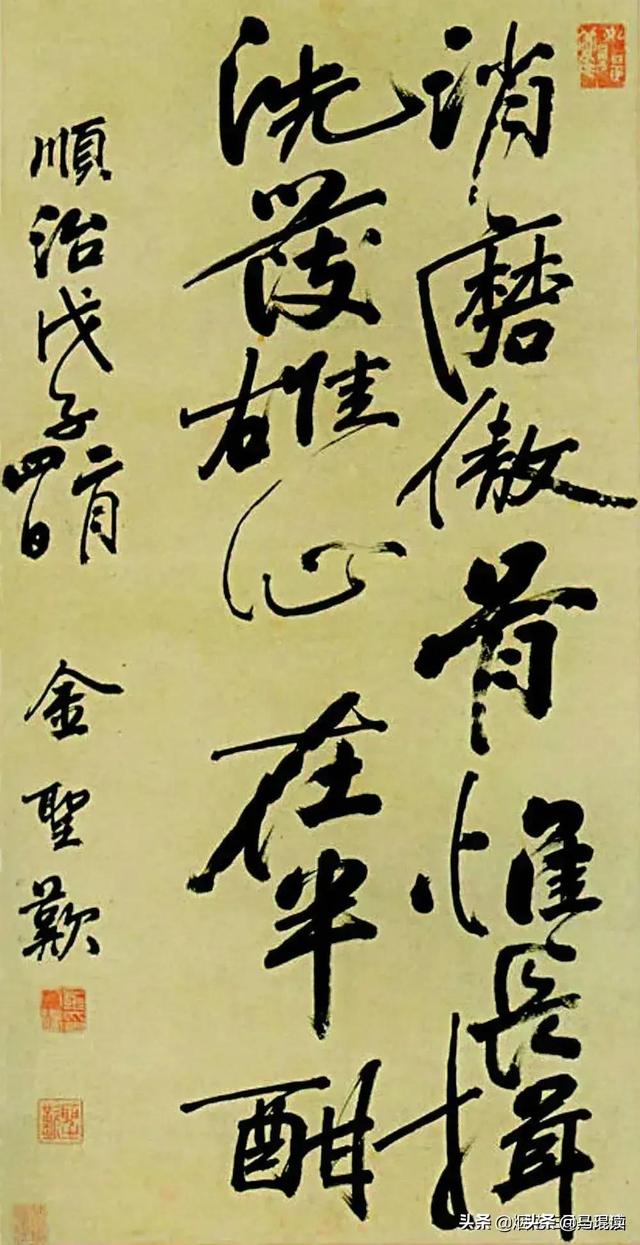 消磨傲骨惟長揖
洗發雄心在半酣
順治戊子二月四日 金聖歎
头条